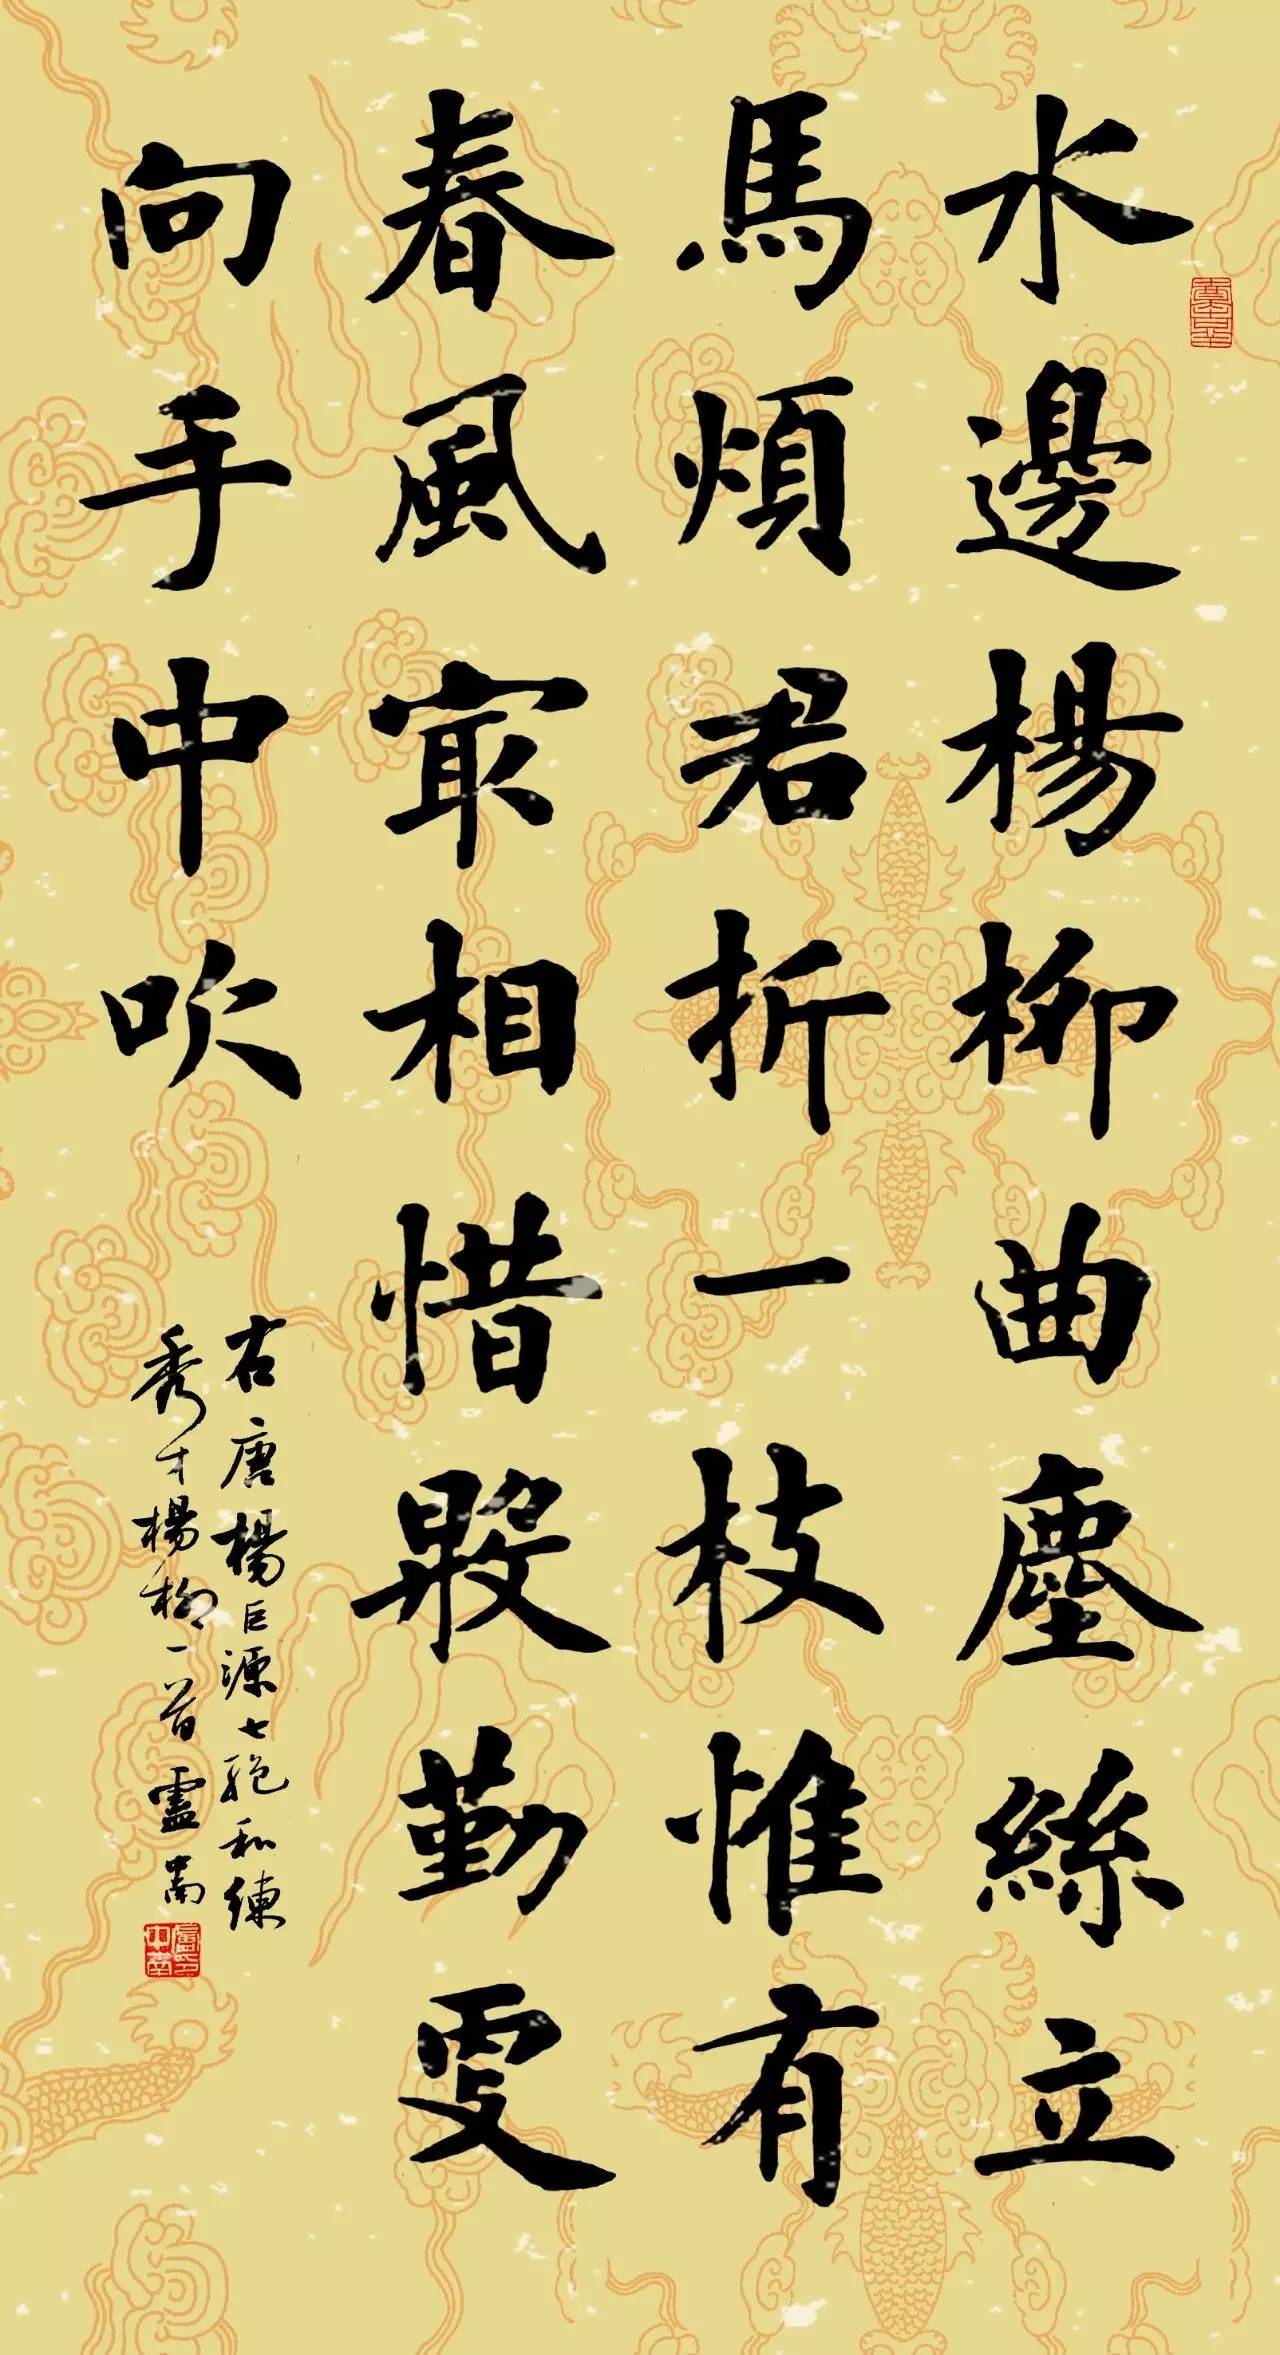 水邊楊柳曲塵絲立
馬煩君折一枝惟有
春風冣相惜殷勤更
向手中吹
右唐楊巨源七絕和練
秀才楊柳一首盧中南
盧中南印